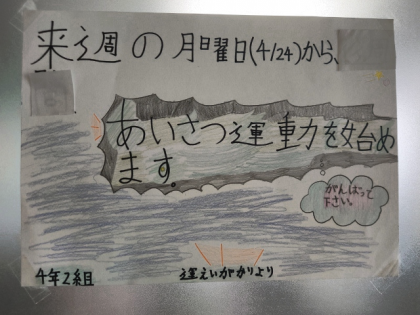 来週の月曜日(4/24)から、
あいさつ運動を始め
ます。
がんばって
下さい。
4年2組
運えいがかりより